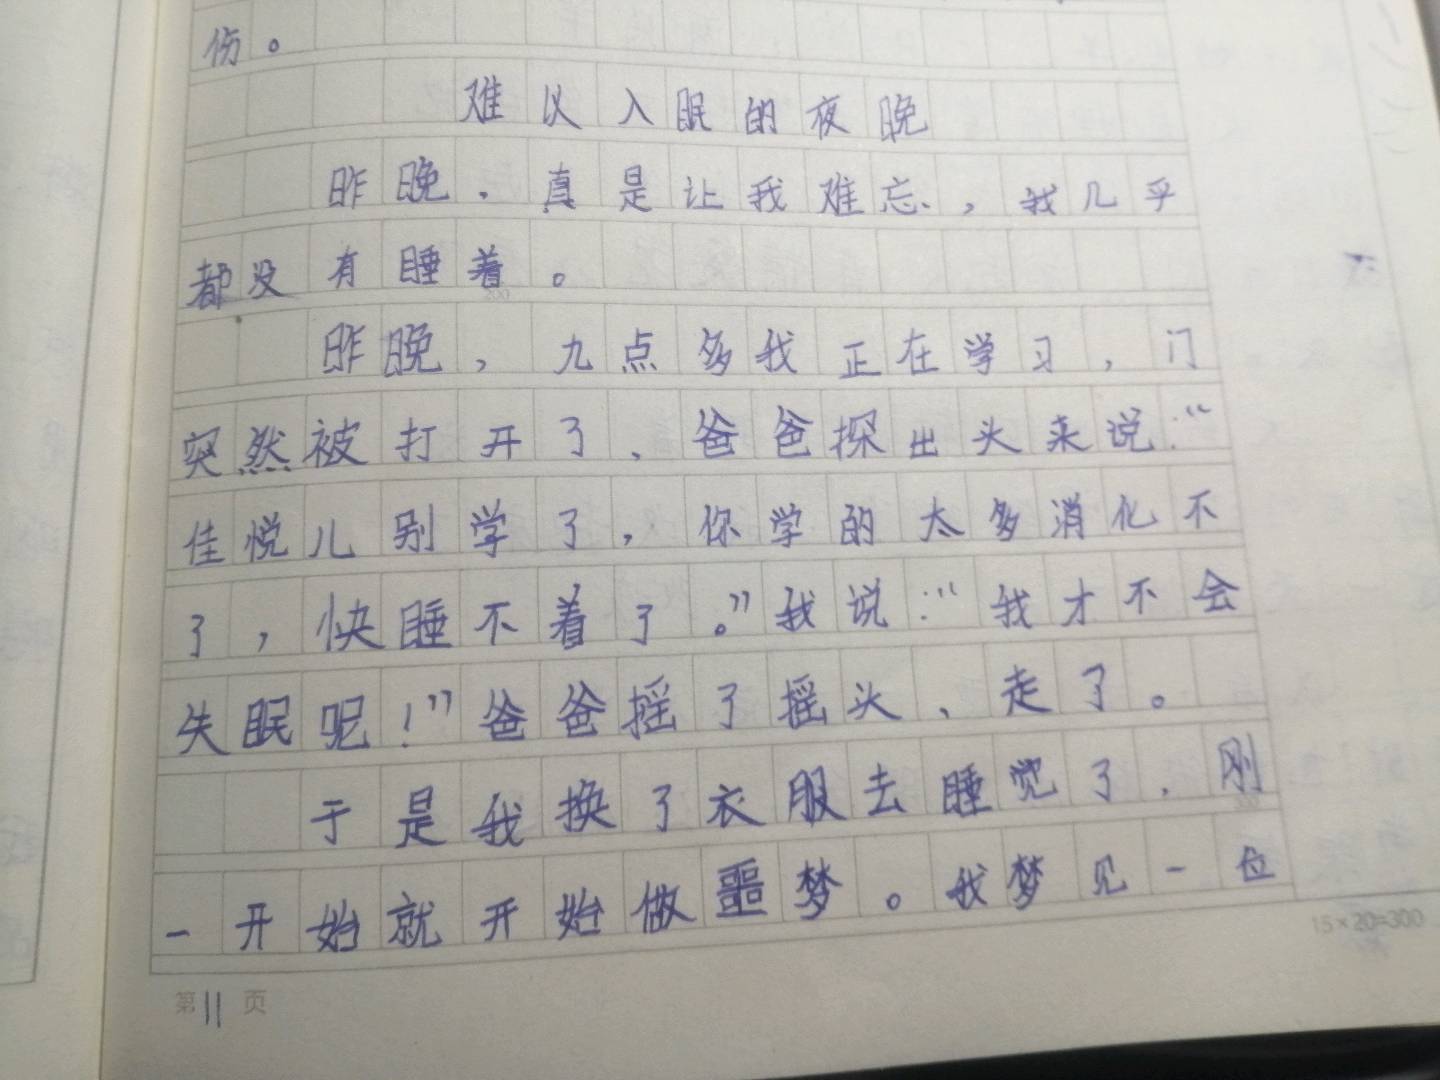 伤。
难以入眠的夜晚
昨晚，真是让我难忘，我几乎
都没有睡着。
200
昨晚，九点多我正在学习，门
突然被打开了，爸爸探出头来说：“
佳悦儿别学了，你学的太多消化不
了，快睡不着了。”我说：“我才不会
失眠呢！”爸爸摇了摇头、走了。
于是我换了衣服去睡觉了，刚
300
一开始就开始做噩梦。我梦见一位
15×20=300
第11页